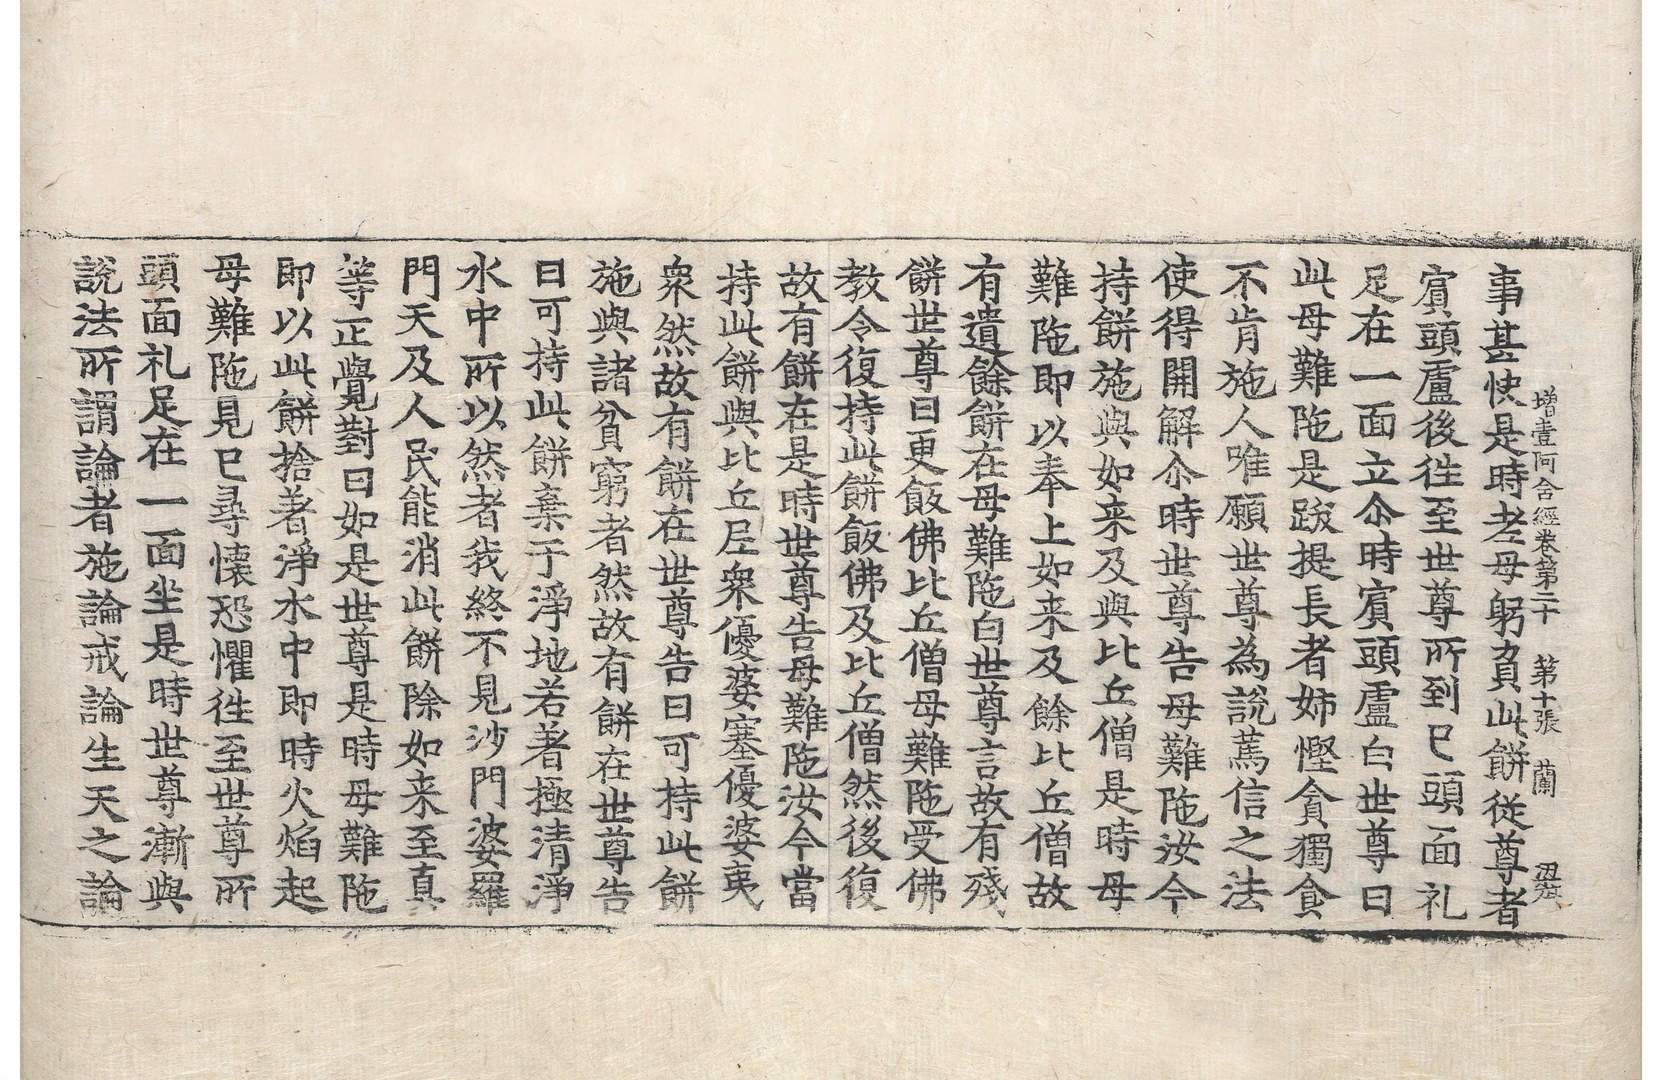 增壹阿含經卷第二十 第十張 蘭
事甚快是時老母躬負此餅從尊者
賔頭盧後往至世尊所到已頭面礼
足在一面立尒時賔頭盧白世尊曰
此母難陁是跋提長者姉慳貪獨食
不肯施人唯願世尊為說篤信之法
使得開解尒時世尊告母難陁汝今
持餅施與如来及與比丘僧是時母
難陁即以奉上如来及餘比丘僧故
有遺餘餅在母難陁白世尊言故有殘
餅世尊曰更飯佛比丘僧母難陁受佛
教令復持此餅飯佛及比丘僧然後復
故有餅在是時世尊告母難陁汝今當
持此餅與比丘尼衆優婆塞優婆夷
衆然故有餅在世尊告曰可持此餅
施與諸貧窮者然故有餅在世尊告
曰可持此餅棄于淨地若著極清淨
水中所以然者我終不見沙門婆羅
門天及人民能消此餅除如来至真
等正覺對曰如是世尊是時母難陁
即以此餅捨著淨水中即時火焰起
母難陁見已尋懷恐懼往至世尊所
頭面礼足在一面坐是時世尊漸與
說法所謂論者施論戒論生天之論